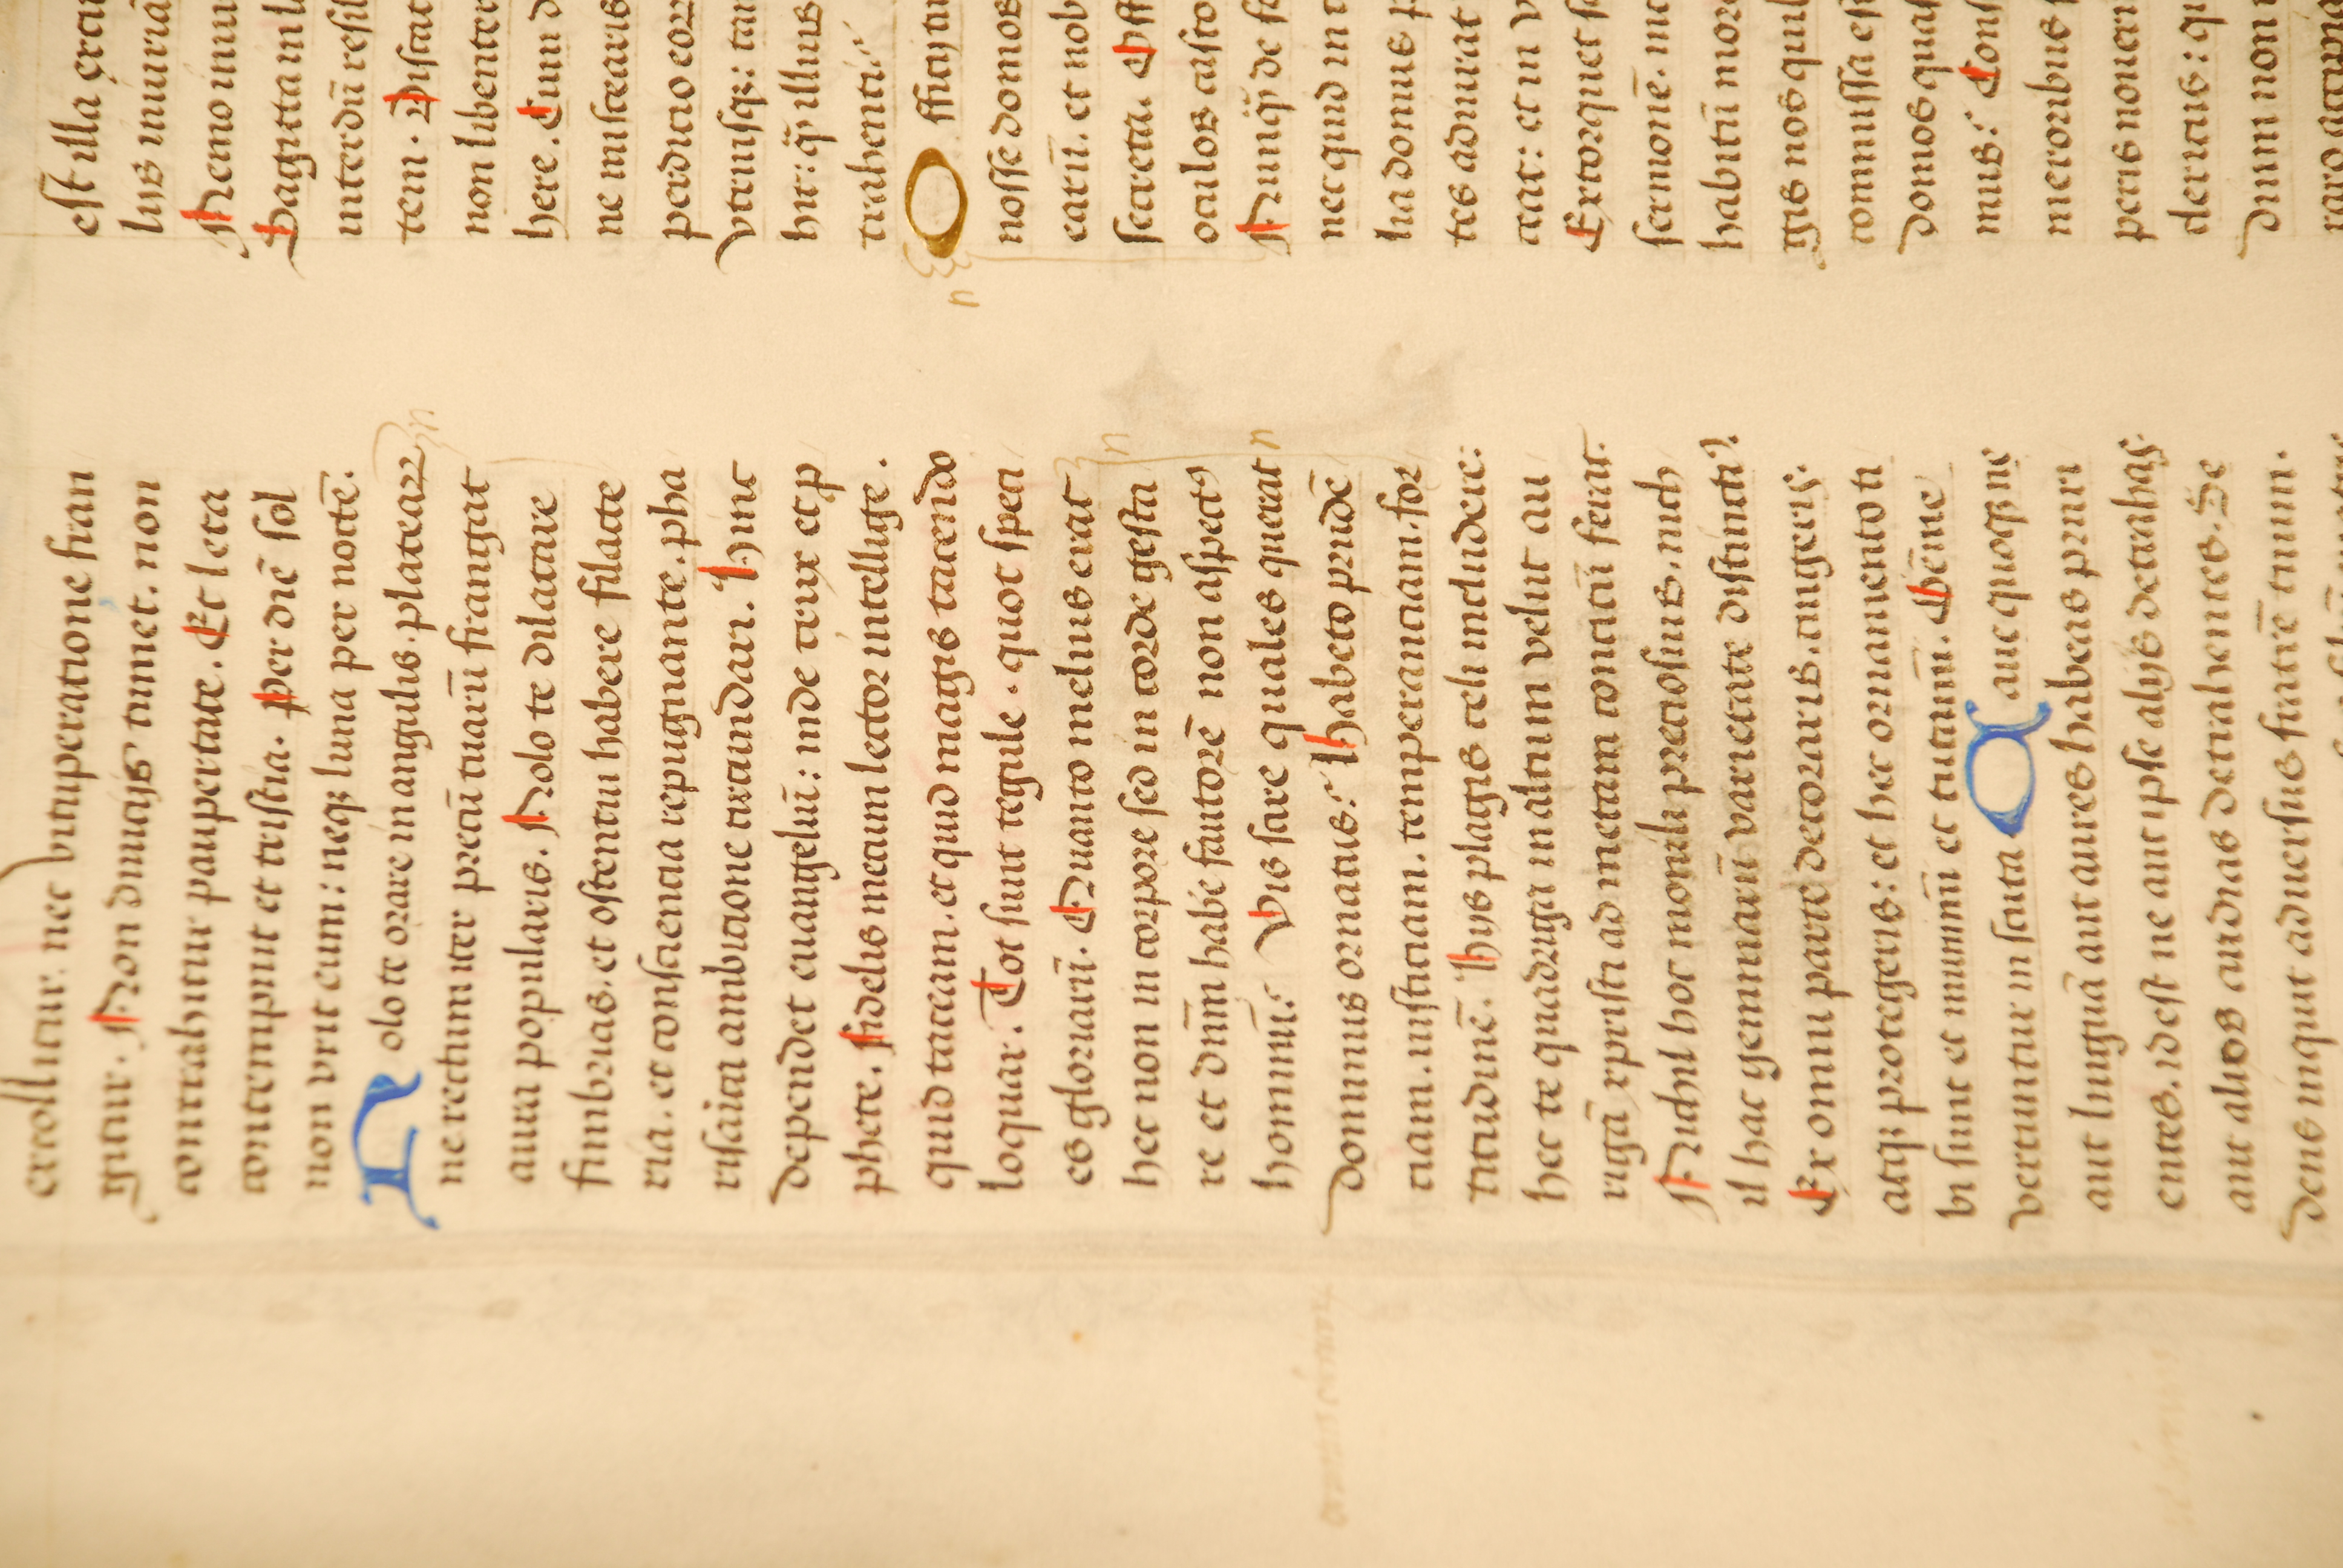 extollitur. nec vituperatione fran
gitur. Non diuicijs tumet. non
contrahitur paupertate. Et leta
contempnit et tristia. Per diē sol
non vrit eum: neqꝫ luna per noctē.
Nolo te orare in angulis plateaꝝ
ne rectum iter precū tuarū frangat
aura popularis. Nolo te dilatare
fimbrias. et ostentui habere filacte
ria. et consciencia repugnante. pha
risaica ambicione circundari. Hinc
dependet euangeliū: inde crux et ꝓ
phete. Fidelis mecum lector intellige.
quid taceam. et quid magis tacendo
loquar. Tot sunt regule. quot speci
es gloriarū. Quanto melius erat
hec non in corpore sed in corde gesta
re et dnm̄ habē fautorē non aspectꝰ
hominū. Vis scire quales querat
dominus ornatus. Habeto prudē
ciam. iusticiam. temperanciam. for
titudinē. Hijs plagis celi includere:
hec te quadriga in altum velut au
rigā xpristi ad metam concitū ferat.
Nichil hoc monili preciosius. nich
il hac gemmarū varietate distinctiꝰ.
Ex omni parte decoraris. cingeris.
atqꝫ protegeris: et hec ornamento ti
bi sunt et munimi et tutamī. Gēme
vertuntur in scuta Caue quoqꝫ ne
aut linguā aut aures habeas pruri
entes. idest ne aut ipse alijs detrahas.
aut alios audias detrahentes. Se
dens inquit aduersus fratrē tuum.
est illa
lus iniuriā
Nemo inui
Sagitta in la
interdū resil
tem. Discat
non libenter
here. Cum d
ne misceatis
perdicio eoꝝ
vtriusqꝫ: tam
hit: illius
trahenti.
Officij tui
nosse domos
earū. et nob
secreta. Off
oculos casto
Nunqꝫ de fo
nec quid in
lia domus p
tes adiurat
ceat: et in v
Extorquet
sermonē.
habitū more
gis nos quil
commissa est
domos quas
mus. Cons
meroribus
peris
clericus: qu
dium non